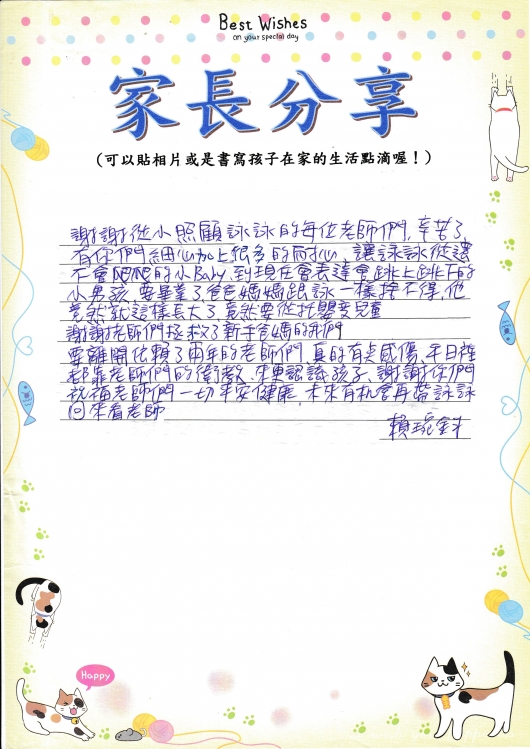 Best Wishes
on your special day
家長分享
(可以貼相片或是書寫孩子在家的生活點滴喔！)
謝謝從小照顧詠詠的每位老師們，辛苦了
有你們細心加上很多的耐心，讓詠詠從還
不會爬爬的小Baby，到現在會表達會跳上跳下的
小男孩，要畢業了，爸爸媽媽跟詠一樣捨不得，他
竟然就這樣長大了，竟然要從托嬰變兒童
謝謝老師們拯救了新手爸媽的我們
要離開依賴了兩年的老師們，真的有点感傷，平日裡
都靠老師們的衛教、來更認識孩子、謝謝你們
祝福老師們一切平安健康，未來有机會再帶詠詠
回來看老師
賴琬
Happy